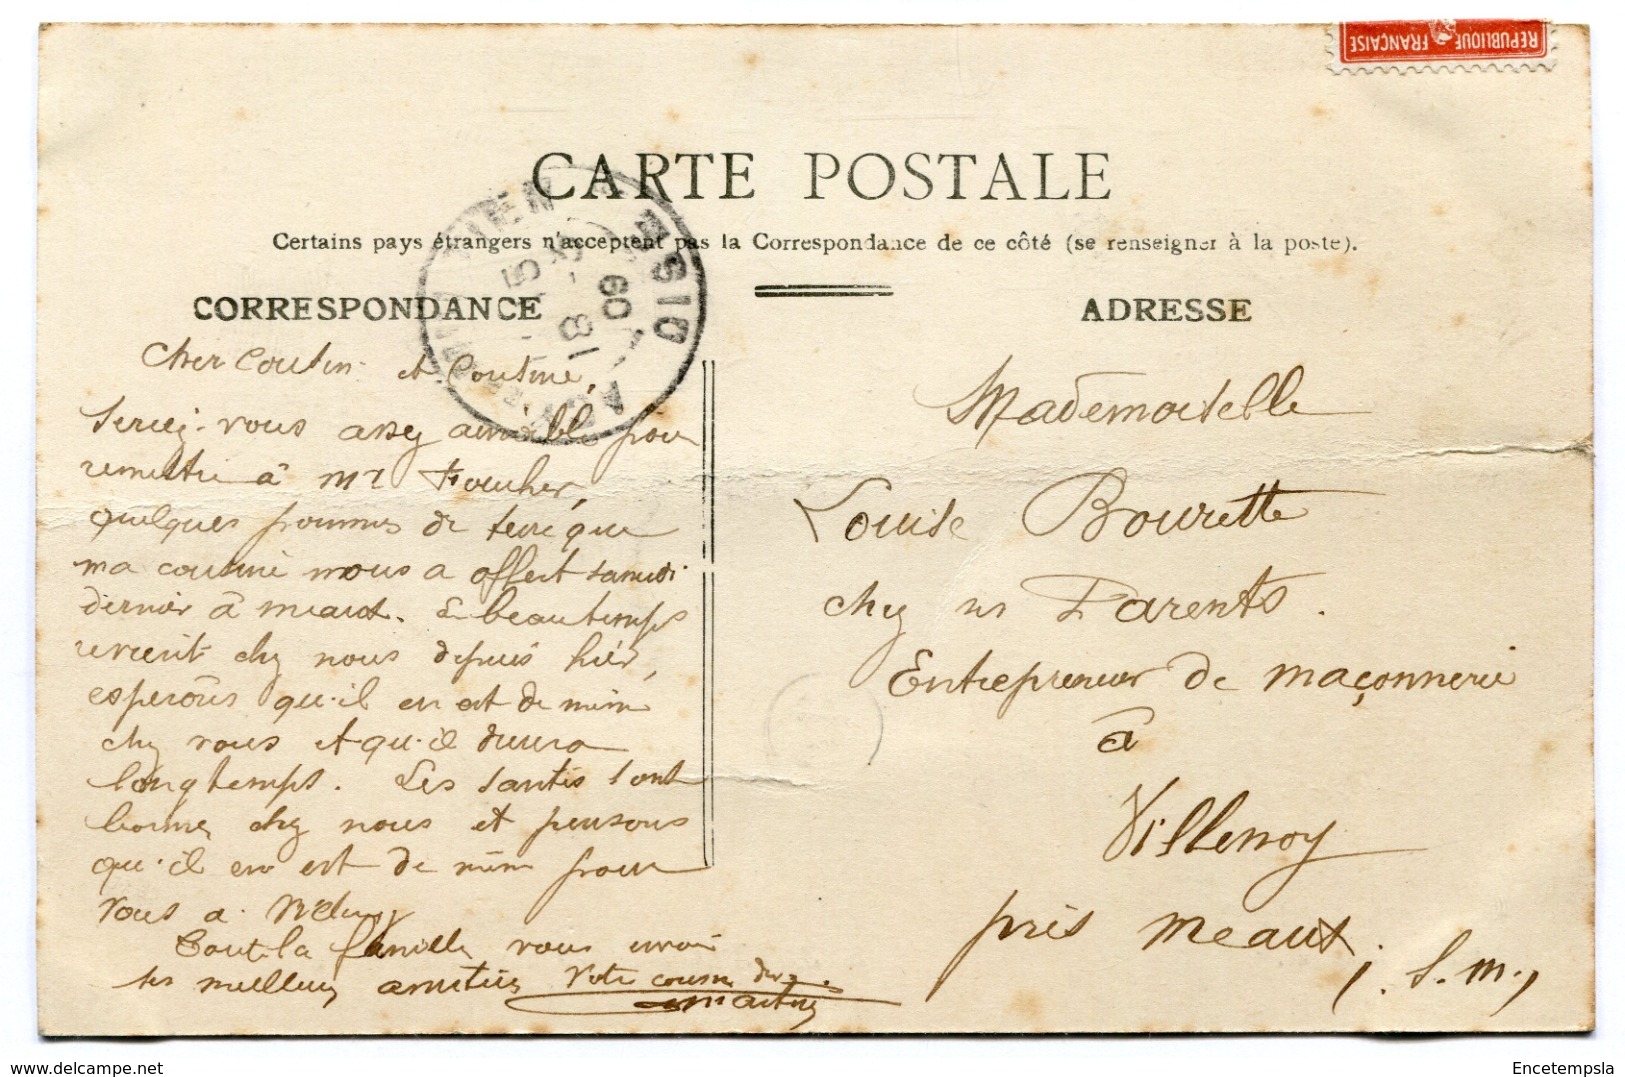 REPUBLIQUE FRANÇAISE
CARTE POSTALE
Certains pays étrangers n'acceptent pas la Correspondance de ce côté (se renseigner à la poste).
CORRESPONDANCE
Cher Cousin et Cousine,
Seriez-vous assez aimable pour
remettre à Mr Foucher,
quelques pommes de terre que
ma cousine nous a offert samedi
dernier à Meaux. Le beau temps
revient chez nous depuis hier,
esperons qu'il en est de même
chez vous et qu'il durera
longtemps. Les santés sont
bonnes chez nous et pensons
qu'il en est de même pour
vous a
Toute la famille vous envoie
ses meilleures amitiés Votre cousin
Martin
ADRESSE
Mademoiselle
Louise Bourette
chez ses Parents.
Entrepreneur de maçonnerie
à
Villenoy
près Meaux
(S. M.)
OISE
18
09
delcampe.net
Encetempsla